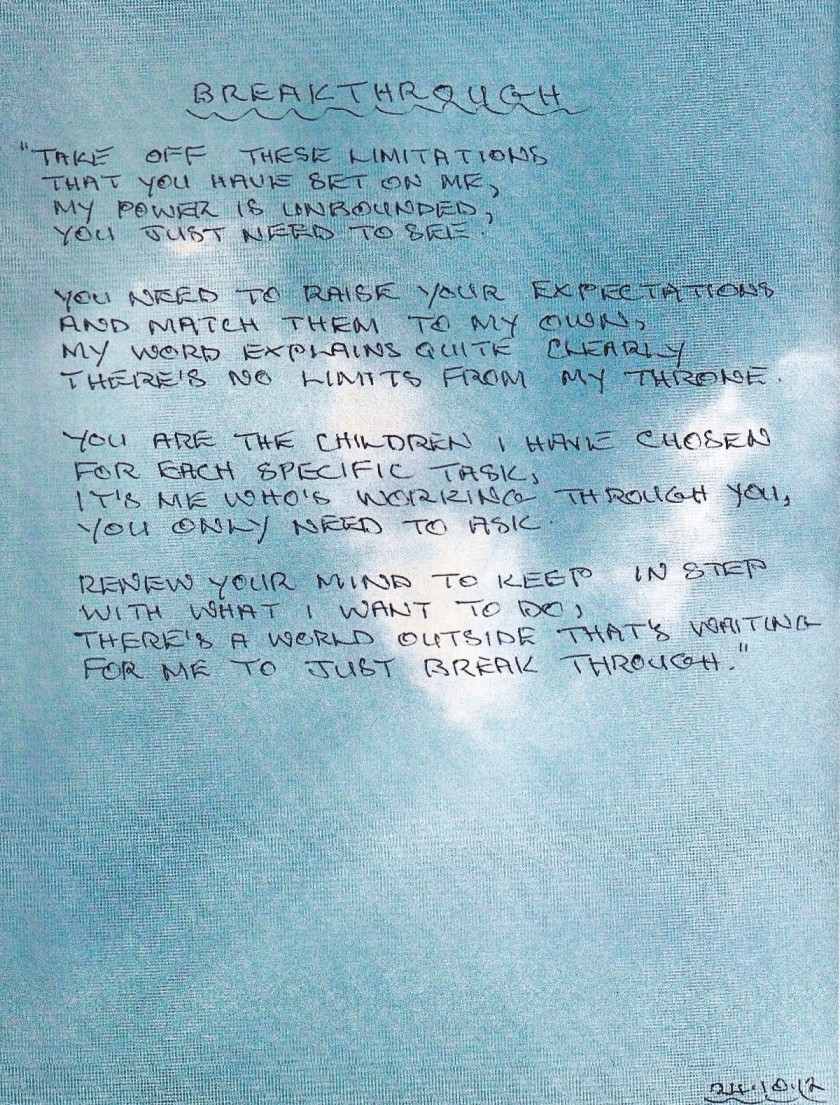 BREAKTHROUGH
"TAKE OFF THESE LIMITATIONS
THAT YOU HAVE SET ON ME,
MY POWER IS UNBOUNDED,
YOU JUST NEED TO SEE.
YOU NEED TO RAISE YOUR EXPECTATIONS
AND MATCH THEM TO MY OWN,
MY WORD EXPLAINS QUITE CLEARLY
THERE'S NO LIMITS FROM MY THRONE.
YOU ARE THE CHILDREN I HAVE CHOSEN
FOR EACH SPECIFIC TASK,
IT'S ME WHO'S WORKING THROUGH YOU,
YOU ONLY NEED TO ASK.
RENEW YOUR MIND TO KEEP IN STEP
WITH WHAT I WANT TO DO,
THERE'S A WORLD OUTSIDE THAT'S WAITING
FOR ME TO JUST BREAK THROUGH."
24.10.12